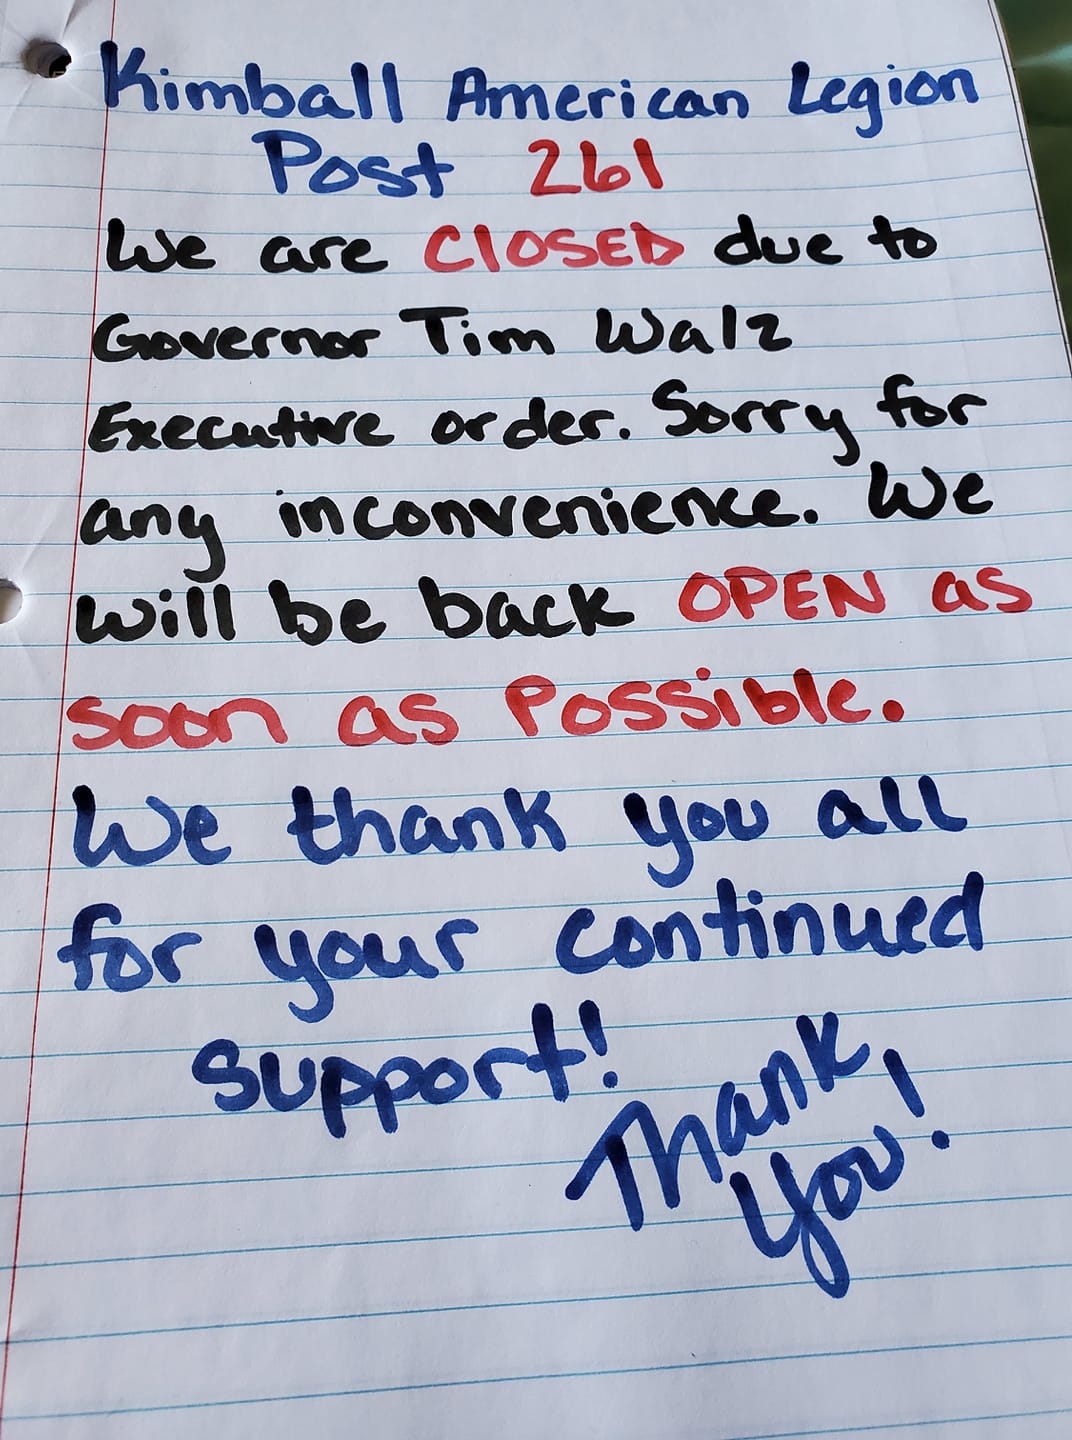 Kimball American Legion
Post 261
We are ClOSED due to
Governor Tim Walz
Executive order. Sorry for
any inconvenience. We
will be back OPEN as
soon as Possible.
We thank you all
for your continued
support!
Thank
You!